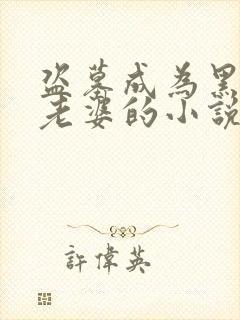 盗墓成為黑
老婆的小說
許偉英